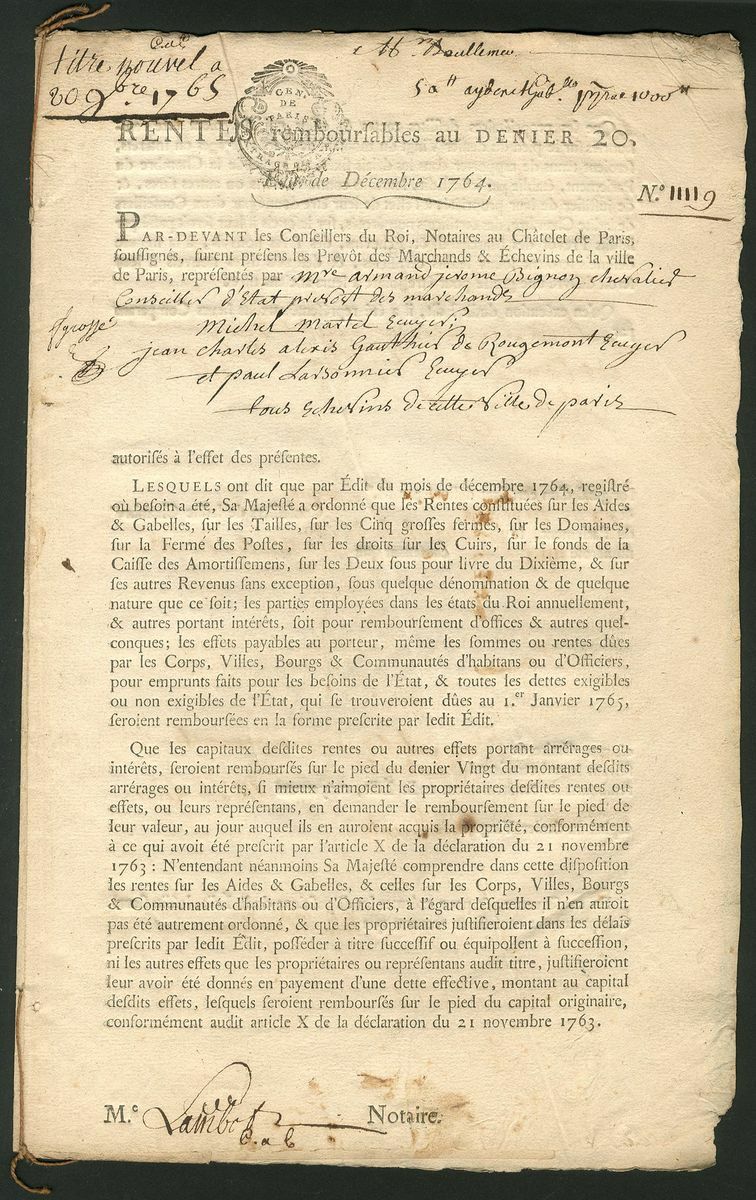 titre nouvel a
20 9bre 1765
C.a.C
Mr Boullemer
50 ll 1000 ll
GEN. DE PARIS
RENTES rembourſables au DENIER 20.
Édit de Décembre 1764.
N.º 11119
PAR-DEVANT les Conſeillers du Roi, Notaires au Châtelet de Paris,
ſouſſignés, furent préſens les Prevôt des Marchands & Échevins de la ville
de Paris, repréſentés par Mre armand jerome Bignon chevalier
Conseiller d'Etat prevost des marchands
Michel Martel Ecuyer;
jean charles alexis Gauthier de Rougemont Ecuyer
et paul Larsonnier Ecuyer
tous Echevins de cette ville de paris
autoriſés à l'effet des préſentes.
LESQUELS ont dit que par Édit du mois de décembre 1764, regiſtré
où beſoin a été, Sa Majeſté a ordonné que les Rentes conſtituées ſur les Aides
& Gabelles, ſur les Tailles, ſur les Cinq groſſes fermes, ſur les Domaines,
ſur la Ferme des Poſtes, ſur les droits ſur les Cuirs, ſur le fonds de la
Caiſſe des Amortiſſemens, ſur les Deux ſous pour livre du Dixième, & ſur
ſes autres Revenus ſans exception, ſous quelque dénomination & de quelque
nature que ce ſoit; les parties employées dans les états du Roi annuellement,
& autres portant intérêts, ſoit pour rembourſement d'offices & autres quel-
conques; les effets payables au porteur, même les ſommes ou rentes dûes
par les Corps, Villes, Bourgs & Communautés d'habitans ou d'Officiers,
pour emprunts faits pour les beſoins de l'État, & toutes les dettes exigibles
ou non exigibles de l'État, qui ſe trouveroient dûes au 1.er Janvier 1765,
ſeroient rembourſées en la forme preſcrite par ledit Édit.
Que les capitaux deſdites rentes ou autres effets portant arrérages ou
intérêts, ſeroient rembourſés ſur le pied du denier Vingt du montant deſdits
arrérages ou intérêts, ſi mieux n'aimoient les propriétaires deſdites rentes ou
effets, ou leurs repréſentans, en demander le rembourſement ſur le pied de
leur valeur, au jour auquel ils en auroient acquis la propriété, conformément
à ce qui avoit été preſcrit par l'article X de la déclaration du 21 novembre
1763 : N'entendant néanmoins Sa Majeſté comprendre dans cette diſpoſition
les rentes ſur les Aides & Gabelles, & celles ſur les Corps, Villes, Bourgs
& Communautés d'habitans ou d'Officiers, à l'égard deſquelles il n'en auroit
pas été autrement ordonné, & que les propriétaires juſtifieroient dans les délais
preſcrits par ledit Édit, poſſéder à titre ſucceſſif ou équipollent à ſucceſſion,
ni les autres effets que les propriétaires ou repréſentans audit titre, juſtifieroient
leur avoir été donnés en payement d'une dette effective, montant au capital
deſdits effets, leſquels ſeroient rembourſés ſur le pied du capital originaire,
conformément audit article X de la déclaration du 21 novembre 1763.
M.e Lambot Notaire.
C.a.C